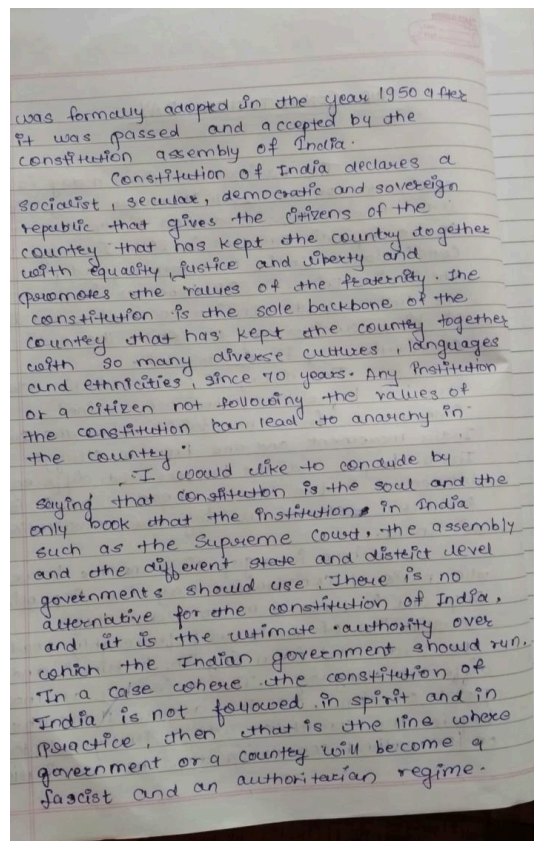 was formally adopted in the year 1950 after
it was passed and accepted by the
constitution assembly of India.
Constitution of India declares a
socialist, secular, democratic and sovereign
republic that gives the citizens of the
country that has kept the country together
with equality, justice and liberty and
promotes the values of the fraternity. The
constitution is the sole backbone of the
country that has kept the country together
with so many diverse cultures, languages
and ethnicities, since 70 years. Any institution
or a citizen not following the values of
the constitution can lead to anarchy in
the country.
I would like to conclude by
saying that constitution is the soul and the
only book that the institutions in India
such as the Supreme Court, the assembly
and the different state and district level
governments should use. There is no
alternative for the constitution of India,
and it is the ultimate authority over
which the Indian government should run.
In a case where the constitution of
India is not followed in spirit and in
practice, then that is the line where
government or a country will become a
fascist and an authoritarian regime.